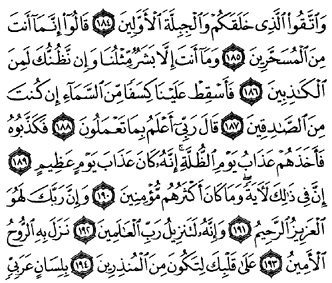 وَٱتَّقُوا۟ ٱلَّذِى خَلَقَكُمْ وَٱلْجِبِلَّةَ ٱلْأَوَّلِينَ ١٨٤ قَالُوٓا۟ إِنَّمَآ أَنتَ
مِنَ ٱلْمُسَحَّرِينَ ١٨٥ وَمَآ أَنتَ إِلَّا بَشَرٌ مِّثْلُنَا وَإِن نَّظُنُّكَ لَمِنَ
ٱلْكَٰذِبِينَ ١٨٦ فَأَسْقِطْ عَلَيْنَا كِسَفًا مِّنَ ٱلسَّمَآءِ إِن كُنتَ
مِنَ ٱلصَّٰدِقِينَ ١٨٧ قَالَ رَبِّىٓ أَعْلَمُ بِمَا تَعْمَلُونَ ١٨٨ فَكَذَّبُوهُ
فَأَخَذَهُمْ عَذَابُ يَوْمِ ٱلظُّلَّةِ ۚ إِنَّهُۥ كَانَ عَذَابَ يَوْمٍ عَظِيمٍ ١٨٩
إِنَّ فِى ذَٰلِكَ لَءَايَةً ۖ وَمَا كَانَ أَكْثَرُهُم مُّؤْمِنِينَ ١٩٠ وَإِنَّ رَبَّكَ لَهُوَ
ٱلْعَزِيزُ ٱلرَّحِيمُ ١٩١ وَإِنَّهُۥ لَتَنزِيلُ رَبِّ ٱلْعَٰلَمِينَ ١٩٢ نَزَلَ بِهِ ٱلرُّوحُ
ٱلْأَمِينُ ١٩٣ عَلَىٰ قَلْبِكَ لِتَكُونَ مِنَ ٱلْمُنذِرِينَ ١٩٤ بِلِسَانٍ عَرَبِىٍّ